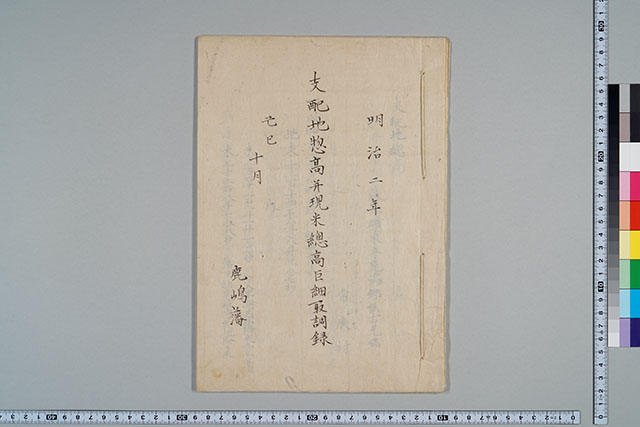 明治二年
支配地惣高并現米總高巨細取調録
己巳十月
鹿嶋藩